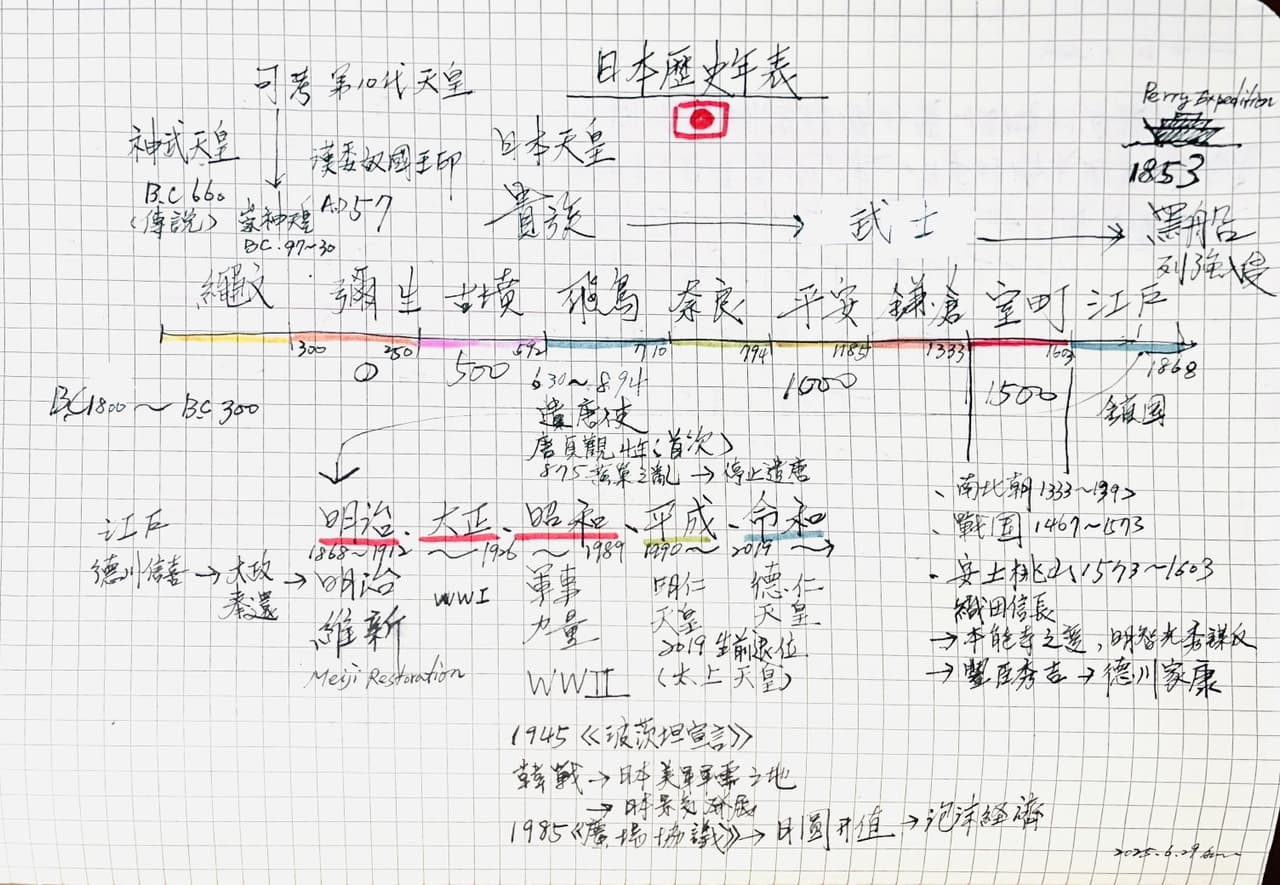 日本歷史年表
可考第10代天皇
Perry Expedition
1853
神武天皇
B.C 660
(傳說)
崇神天皇
B.C. 97~30
漢委奴國王印
A.D 57
日本天皇
貴族 → 武士 → 黑船
列強入侵
繩文 彌生 古墳 飛鳥 奈良 平安 鎌倉 室町 江戶
300 250 592 710 794 1185 1333 1603 1868
0 500 1000 1500
BC1800～BC300
鎖国
630～894
遣唐使
唐貞觀4年(首次)
875黃巢之亂→停止遣唐
、南北朝1333～1392
、戰国 1467～1573
、安土桃山、1573～1603
織田信長
→本能寺之變，明智光秀謀反
→豐臣秀吉→德川家康
明治、大正、昭和、平成、令和
1868～1912 ～1926 ～1989 1990～ 2019 →
江戶
德川信喜→太政奉還→明治維新
Meiji Restoration
WWI
軍事力量
WWII
明仁天皇
2019生前退位
(太上天皇)
德仁天皇
1945《波茨坦宣言》
韓戰→日本美軍軍需之地
1985《廣場協議》→日圓升值→泡沫經濟
2025.6.29